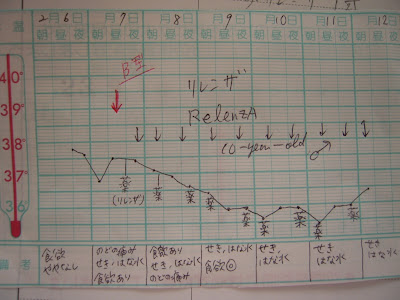 温 2月6日 7日 8日 9日 10日 11日 12日
朝昼夜 朝昼夜 朝昼夜 朝昼夜 朝昼夜 朝昼夜 朝
B型
40°
リレンザ
39°
RelenzA
10-year-old
38°
37°
薬 薬 薬 薬 薬 薬 薬 薬
(リレンザ)
36°
備考
食欲
ややなし
のどの痛み
せき,はな水
食欲あり
食欲あり
せき,はな水
のどの痛み
せき,はな水
食欲◎
せき,
はな水
せき,
はな水
せき
はな水